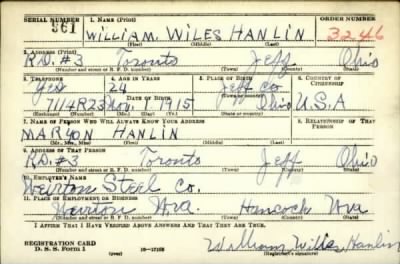 SERIAL NUMBER 1. NAME (Print) ORDER NUMBER
361 WILLIAM WILES HANLIN 3246
(First) (Middle) (Last)
2. ADDRESS (Print)
R.D. #3 Toronto Jeff Ohio
(Number and street or R. F. D. number) (Town) (County) (State)
3. TELEPHONE 4. AGE IN YEARS 5. PLACE OF BIRTH 6. COUNTRY OF CITIZENSHIP
Yes 24 Jeff Co
DATE OF BIRTH
7114R23 Nov. 1 1915 Ohio U.S.A
7. NAME OF PERSON WHO WILL ALWAYS KNOW YOUR ADDRESS 8. RELATIONSHIP OF THAT PERSON
MARYON HANLIN
(Mr., Mrs., Miss) (First) (Middle) (Last)
9. ADDRESS OF THAT PERSON
R.D. #3 Toronto Jeff Ohio
(Number and street or R. F. D. number) (Town) (County) (State)
10. EMPLOYER'S NAME
Weirton Steel Co.
11. PLACE OF EMPLOYMENT OR BUSINESS
Weirton W.va. Hancock W va
(Number and street or R. F. D. number) (Town) (County) (State)
I AFFIRM THAT I HAVE VERIFIED ABOVE ANSWERS AND THAT THEY ARE TRUE.
REGISTRATION CARD
D. S. S. Form 1 (over) William Wiles Hanlin
(Registrant's signature)